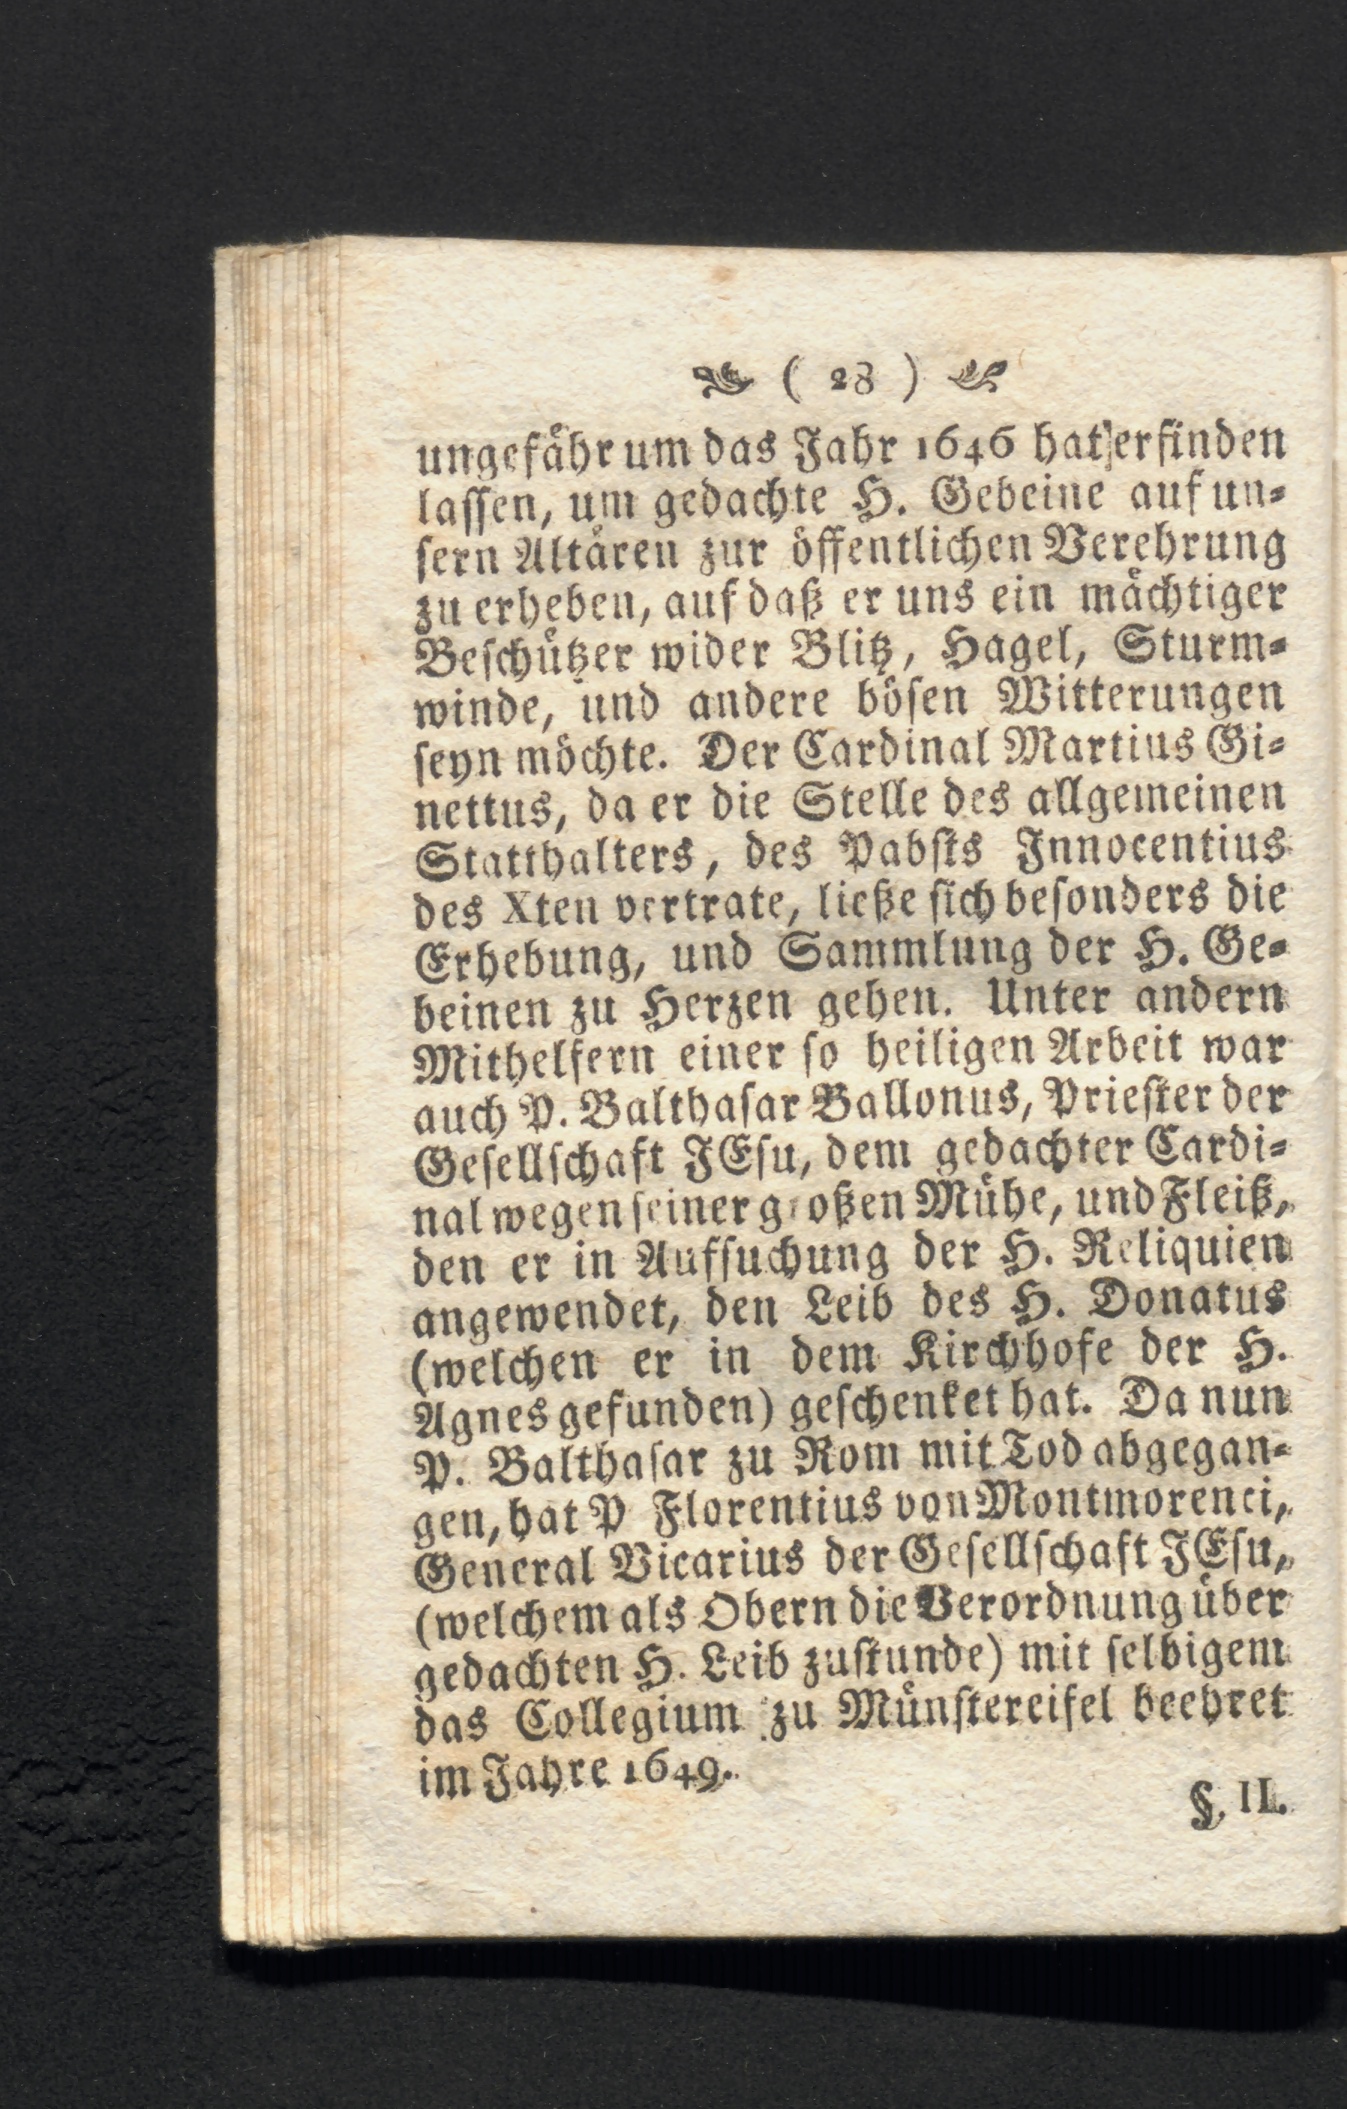 ( 28 )
ungefähr um das Jahr 1646 hat erfinden
lassen, um gedachte H. Gebeine auf un-
sern Altären zur öffentlichen Verehrung
zu erheben, auf daß er uns ein mächtiger
Beschützer wider Blitz, Hagel, Sturm-
winde, und andere bösen Witterungen
seyn möchte. Der Cardinal Martius Gi-
nettus, da er die Stelle des allgemeinen
Statthalters, des Pabsts Innocentius
des Xten vertrate, ließe sich besonders die
Erhebung, und Sammlung der H. Ge-
beinen zu Herzen gehen. Unter andern
Mithelfern einer so heiligen Arbeit war
auch P. Balthasar Ballonus, Priester der
Gesellschaft JEsu, dem gedachter Cardi-
nal wegen seiner großen Mühe, und Fleiß,
den er in Aufsuchung der H. Reliquien
angewendet, den Leib des H. Donatus
(welchen er in dem Kirchhofe der H.
Agnes gefunden) geschenket hat. Da nun
P. Balthasar zu Rom mit Tod abgegan-
gen, hat P Florentius von Montmorenci,
General Vicarius der Gesellschaft JEsu,
(welchem als Obern die Verordnung über
gedachten H. Leib zustunde) mit selbigem
das Collegium zu Münstereifel beehret
im Jahre 1649.
§. II.